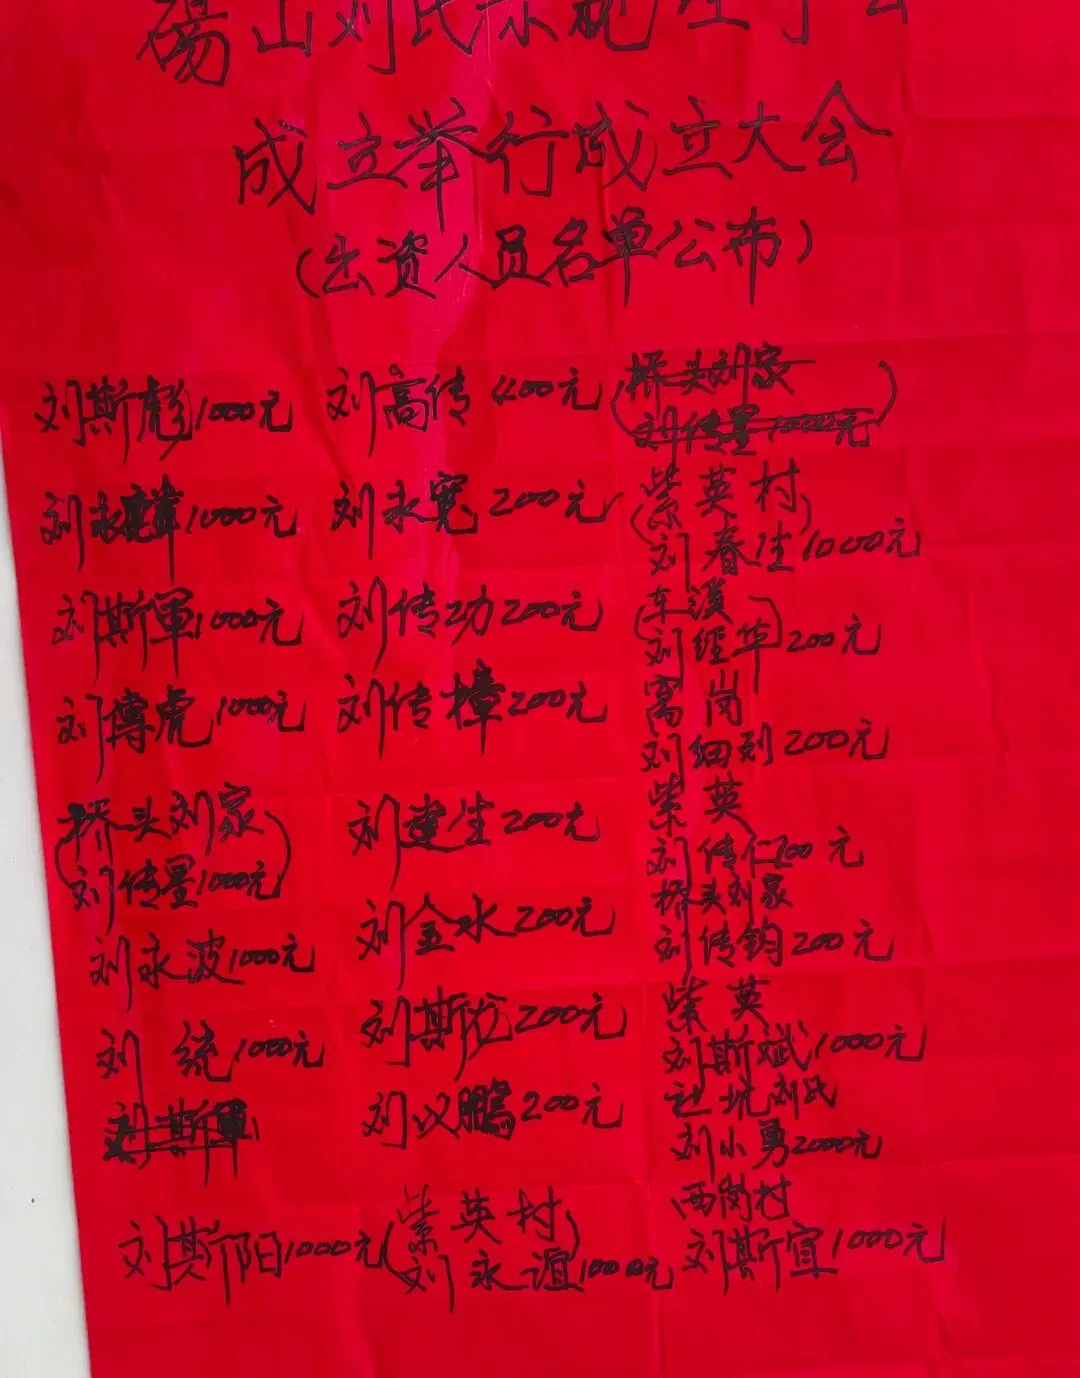 砀山刘氏宗亲理事会
成立举行成立大会
(出资人员名单公布)
刘斯彪1000元 刘高传 400元 (桥头刘家
刘传墨1000元)
刘永麟1000元 刘永宽200元 (紫英村)
刘春生1000元
刘斯軍1000元 刘传功200元 (车溪)
刘经华200元
刘博虎1000元 刘传樟200元 窝岗
刘细列200元
(桥头刘家 刘建生200元 紫英
刘传墨1000元) 刘传仁200元
刘永波1000元 刘金水200元 桥头刘家
刘传钧200元
刘统1000元 刘斯龙200元 紫英
刘斯斌1000元
刘斯 刘以鹏200元 社坑刘氏
刘小勇2000元
刘斯阳1000元 (紫英村) 西岗村
刘永谊1000元 刘斯宜1000元